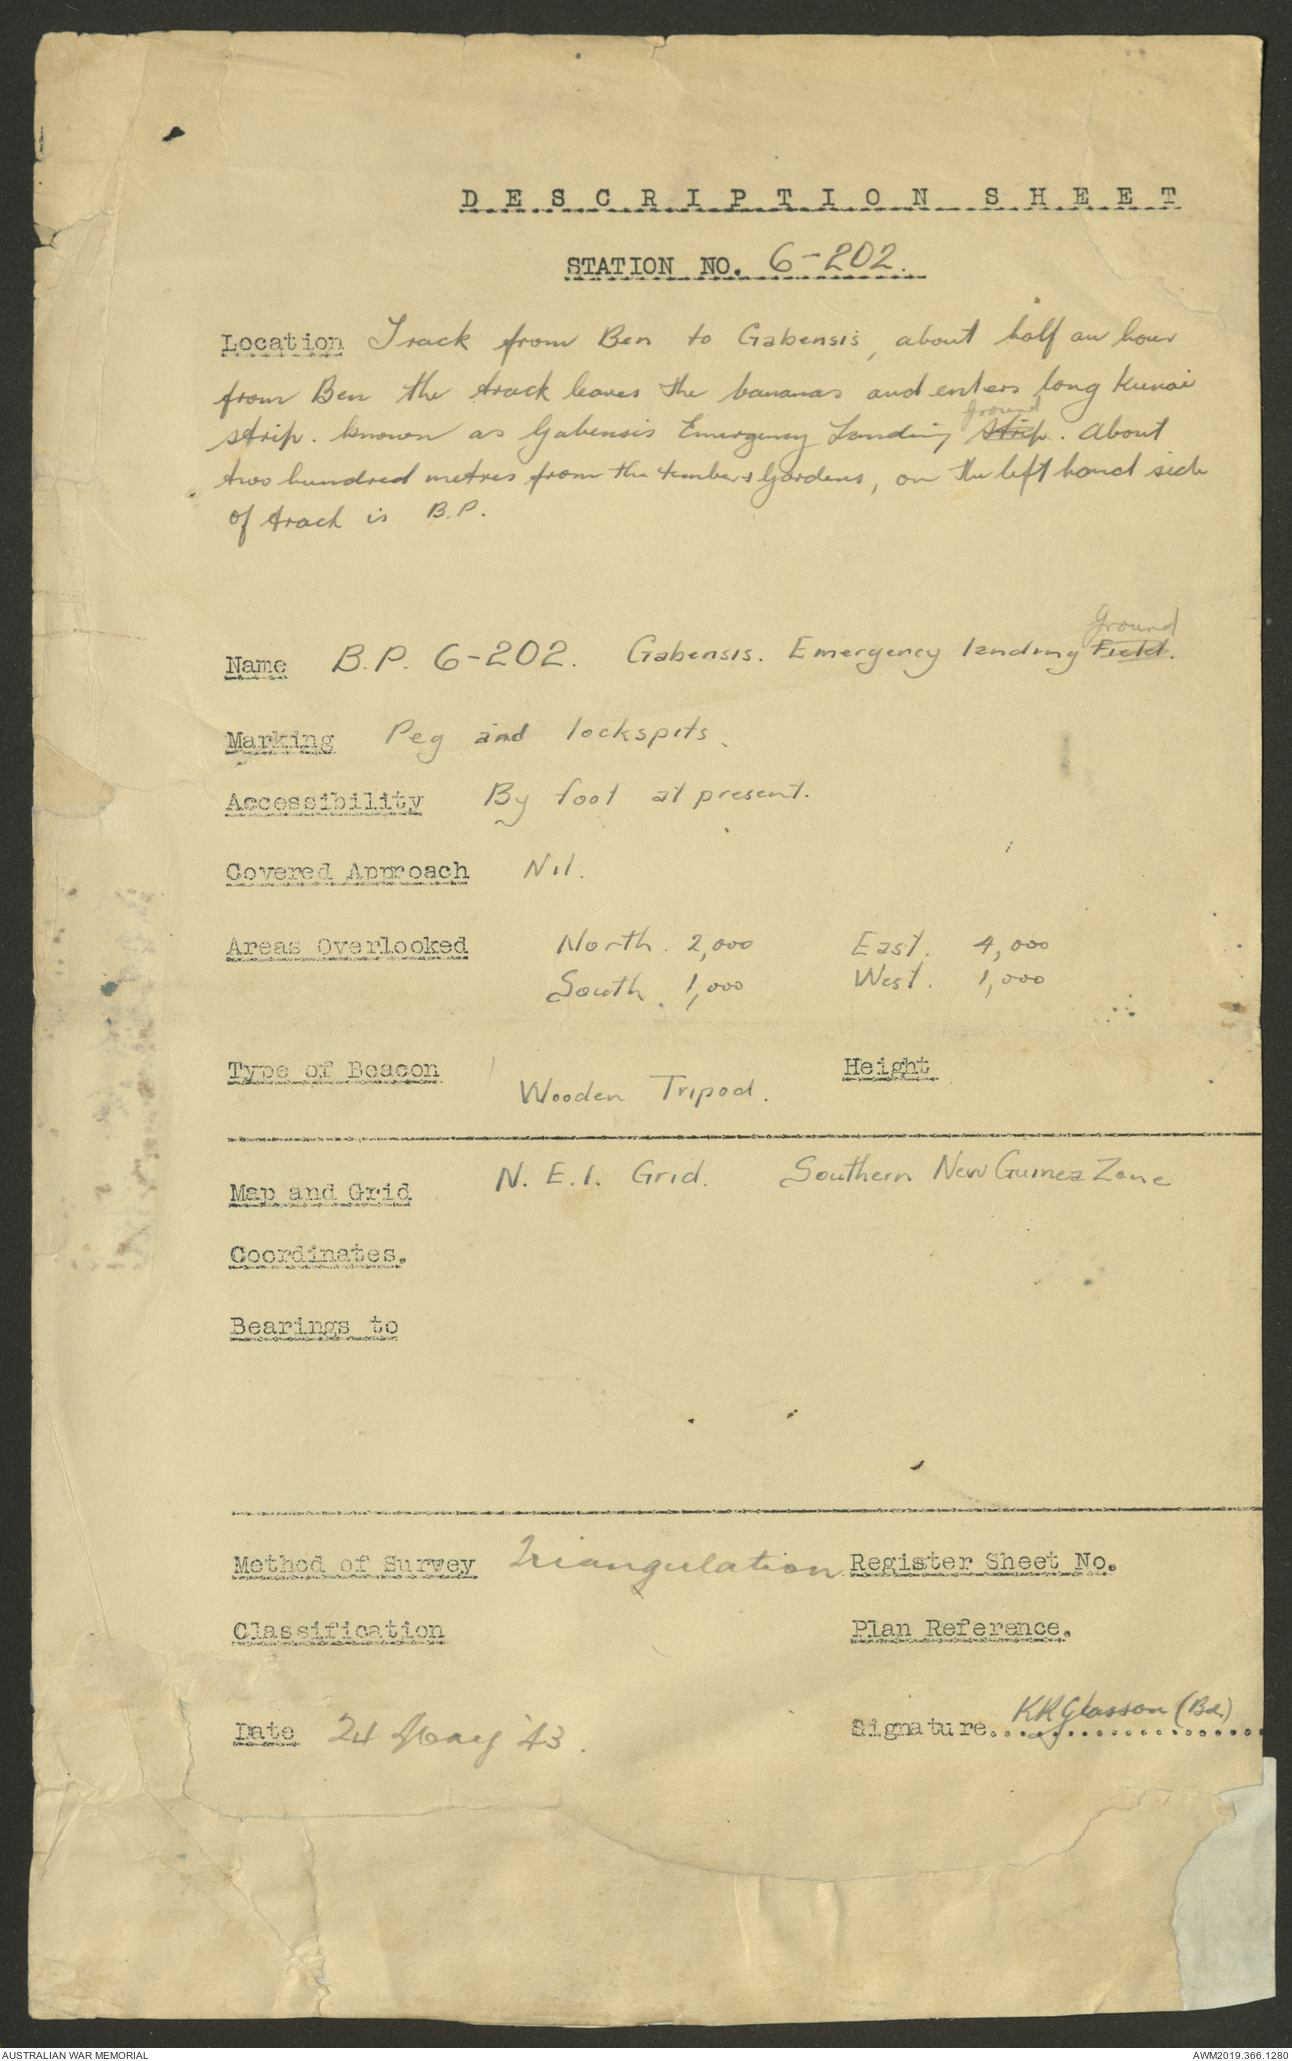 DESCRIPTION SHEET
STATION NO. 6-202.
Location Track from Ben to Gabensis, about half an hour
from Ben the track leaves the bananas and enters long Kunai
ground
strip. known as Gabensis Emergency Landing Strip. About
two hundred metres from the timber & Gardens, on the left hand side
of track is B.P.
Ground
Name B.P. 6-202. Gabensis. Emergency landing Field.
Marking Peg and lockspits.
Accessibility By foot at present.
Covered Approach Nil.
Areas Overlooked North. 2,000 East. 4,000
South. 1,000 West. 1,000
Type of Beacon Height
Wooden Tripod.
Map and Grid N.E.I. Grid. Southern New Guinea Zone
Coordinates.
Bearings to
Method of Survey Triangulation Register Sheet No.
Classification Plan Reference.
Date 24 May '43. Signature. KRGlasson (Bdr)
AUSTRALIAN WAR MEMORIAL AWM2019.366.1280